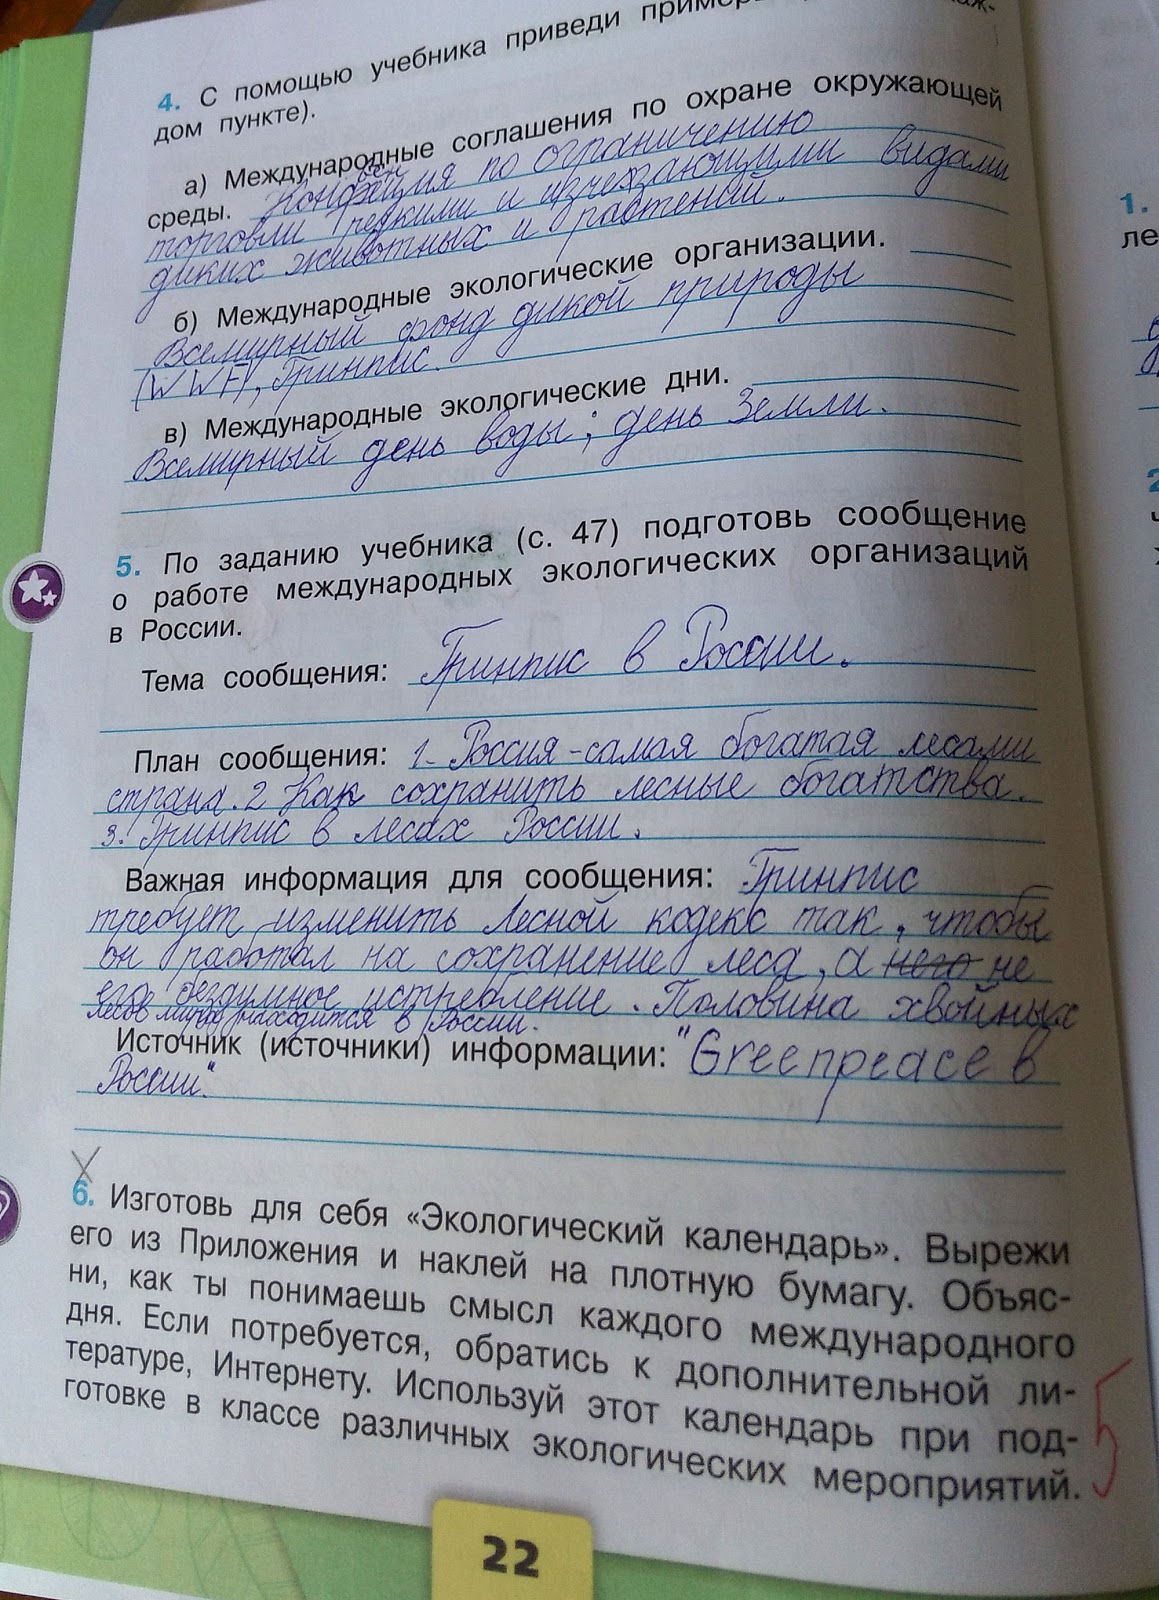 4. С помощью учебника приведи
дом пункте).
а) Международные соглашения по охране окружающей
среды. Конвенция по ограничению
торговли редкими и исчезающими видами
диких животных и растений.
б) Международные экологические организации.
Всемирный фонд дикой природы
(WWF), Гринпис.
в) Международные экологические дни.
Всемирный день воды; день Земли.
5. По заданию учебника (с. 47) подготовь сообщение
о работе международных экологических организаций
в России.
Тема сообщения: Гринпис в России.
План сообщения: 1. Россия - самая богатая лесами
страна. 2 Как сохранить лесные богатства.
3. Гринпис в лесах России.
Важная информация для сообщения: Гринпис
требует изменить Лесной кодекс так, чтобы
он работал на сохранение леса, а него не
его бездумное истребление. Половина хвойных
лесов мира находится в России.
Источник (источники) информации: "Greenpeace в
России".
6. Изготовь для себя «Экологический календарь». Вырежи
его из Приложения и наклей на плотную бумагу. Объяс-
ни, как ты понимаешь смысл каждого международного
дня. Если потребуется, обратись к дополнительной ли-
тературе, Интернету. Используй этот календарь при под-
готовке в классе различных экологических мероприятий.
5
22
1.
ле
2